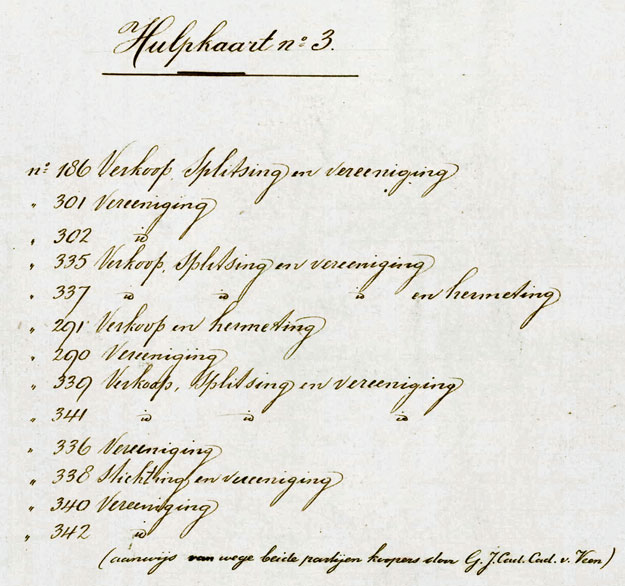 Hulpkaart nº 3.
nº 186 Verkoop, Splitsing en vereeniging
" 301 Vereeniging
" 302 id
" 335 Verkoop, Splitsing en vereeniging
" 337 id id id en hermeting
" 291 Verkoop en hermeting
" 290 Vereeniging
" 339 Verkoop, Splitsing en vereeniging
" 341 id id id
" 336 Vereeniging
" 338 Stichting en vereeniging
" 340 Vereeniging
" 342 id
(aanwijs van wege beide partijen koopers door G. J. Cad. v. Veen)